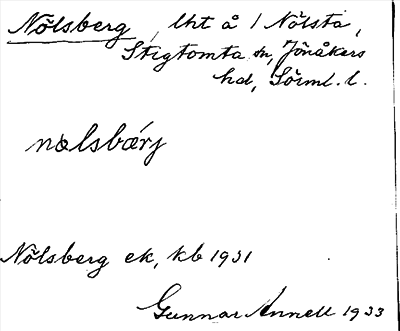 Nölsberg, lht å 1 Nölsta,
Stigtomta sn, Jönåkers
hd, Sörml. l.
nɷlsbærj
Nölsberg ek, kb 1931
Gunnar Annell 1933